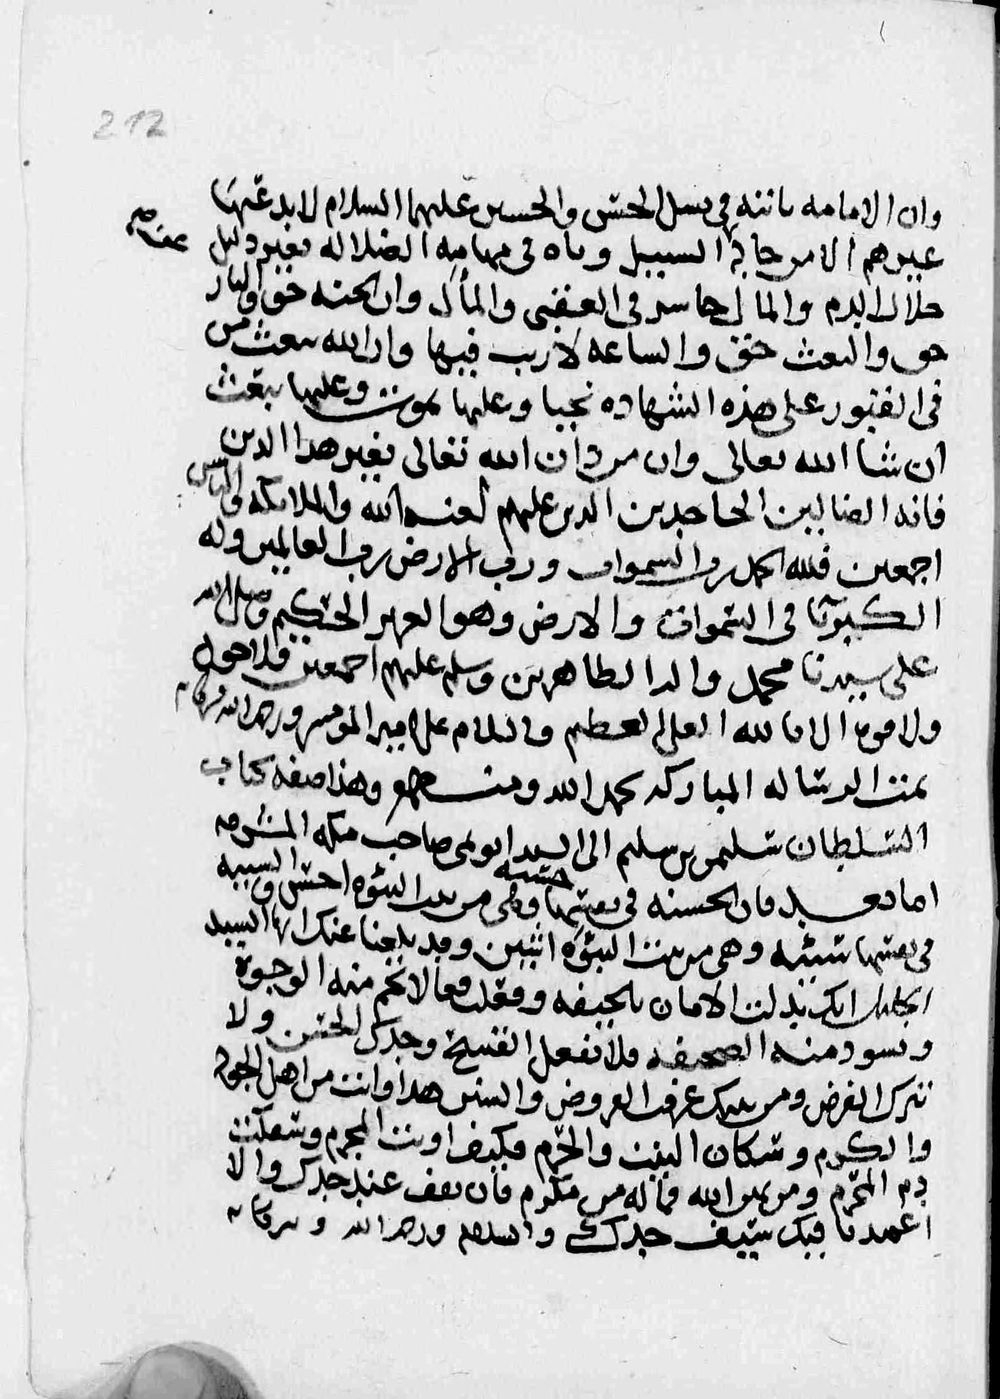 212
وان الامامه ثابته في نسل الحسن والحسين عليهما السلام لا يدعيها
غيرهم الا من حاد السبيل وتاه في مهامه الضلاله بغير دليل
حلال الدم والمال خاسر في العقبى والمآل وان الجنه حق والنار
حق والبعث حق والساعه لا ريب فيها وان الله يبعث من
في القبور على هذه الشهاده نحيا وعليها نموت وعليها نبعث
ان شا الله تعالى وان من دان الله تعالى بغير هذا الدين
فانه الضالين الجاحدين الذين عليهم لعنه الله والملائكه والناس
اجمعين فلله الحمد رب السموات ورب الارض رب العالمين وله
الكبريآ في السموات والارض وهو العزيز الحكيم وصلى الله
على سيدنا محمد واله الطاهرين وسلم عليهم اجمعين ولا حول
ولا قوه الا بالله العلي العظيم والسلام على امير المومنين ورحمه الله وبركاته
تمت الرساله المباركه بحمد الله ومنه وهذا صفه كتاب
السلطان سليمن بن سليم الى السيد ابو نمي صاحب مكه المشرفه
اما بعد فان الحسنه في نفسها حسنه وهي من بيت النبوه احسن والسييه
في نفسها سييه وهي من بيت النبوه وقد بلغنا عنك ايها السيد
الجليل انك بدلت الامان بالخيفه وفعلت فعالا تحمر منه الوجوه
وتسود منه الصحيفه فلا تفعل القبيح وجدك الحسن ولا
تترك الفرض ومن بيتك عرف الفروض والسنن هذا وانت من اهل الجود
والكرم وسكان البيت والحرم فكيف اويت المجرم وسفكت
دم المحرم ومن يهن الله فما له من مكرم فان تقف عند جدك والا
اغمدنا فيك سيف جدك والسلام ورحمه الله وبركاته